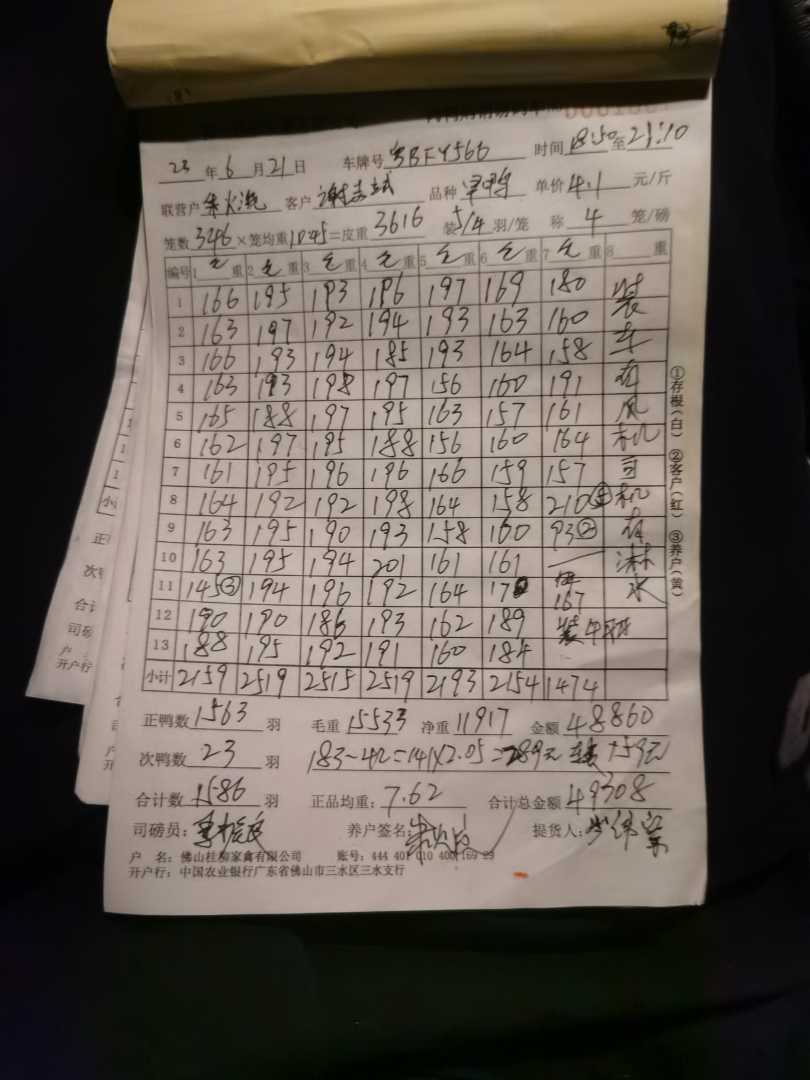 23 年 6 月 21 日 车牌号 粤BFY566 时间 18:50 至 21:10
联营户 客户 品种 单价 4.1 元/斤
笼数 346 × 笼均重 10.45 = 皮重 3616 装 5/4 羽/笼 称 4 笼/磅
编号 1 毛 重 2 毛 重 3 毛 重 4 毛 重 5 毛 重 6 毛 重 7 毛 重 8 重
1 166 195 193 196 197 169 180 装
2 163 197 192 194 193 163 160 车
3 166 193 194 185 193 164 158 有
4 163 193 198 197 156 160 191 风
5 165 188 197 195 163 157 161 机
6 162 197 195 188 156 160 164 司
7 161 195 196 196 166 159 157 机
8 164 192 192 198 164 158 210⑤ 有
9 163 195 190 193 158 160 93② 淋
10 163 195 194 201 161 161 水
11 145③ 194 196 192 164 167
12 190 190 186 193 162 189 装中班
13 188 195 192 191 160 184
小计 2159 2519 2515 2519 2193 2154 1474
正鸭数 1563 羽 毛重 15533 净重 11917 金额 48860
次鸭数 23 羽 183-42=141×2.05=289元 +159元
合计数 1586 羽 正品均重: 7.62 合计总金额 49308
司磅员: 养户签名: 提货人:
户 名: 佛山桂柳家禽有限公司 账号: 444 401 010 400 169 29
开户行: 中国农业银行广东省佛山市三水区三水支行
①存根(白) ②客户(红) ③养户(黄)